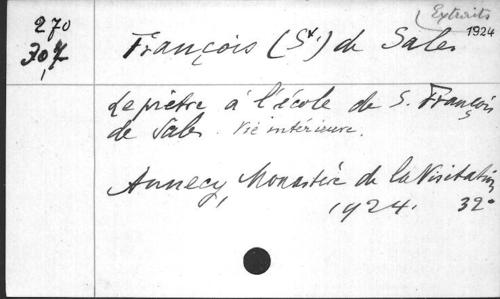 Extraits
270
1924
30,7
François (St.) de Sales
Le prêtre à l'école de S. François
de Sales. Vie intérieure.
Annecy, Monastère de la Visitation
1924. 32°